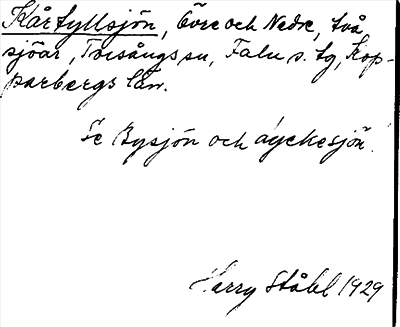 Kårtyllsjön, Övre och Nedre, två
sjöar, Torsångs sn, Falu s. tg, Kop-
parbergs län.
Se Bysjön och Lyckesjön.
Harry Ståhl 1929